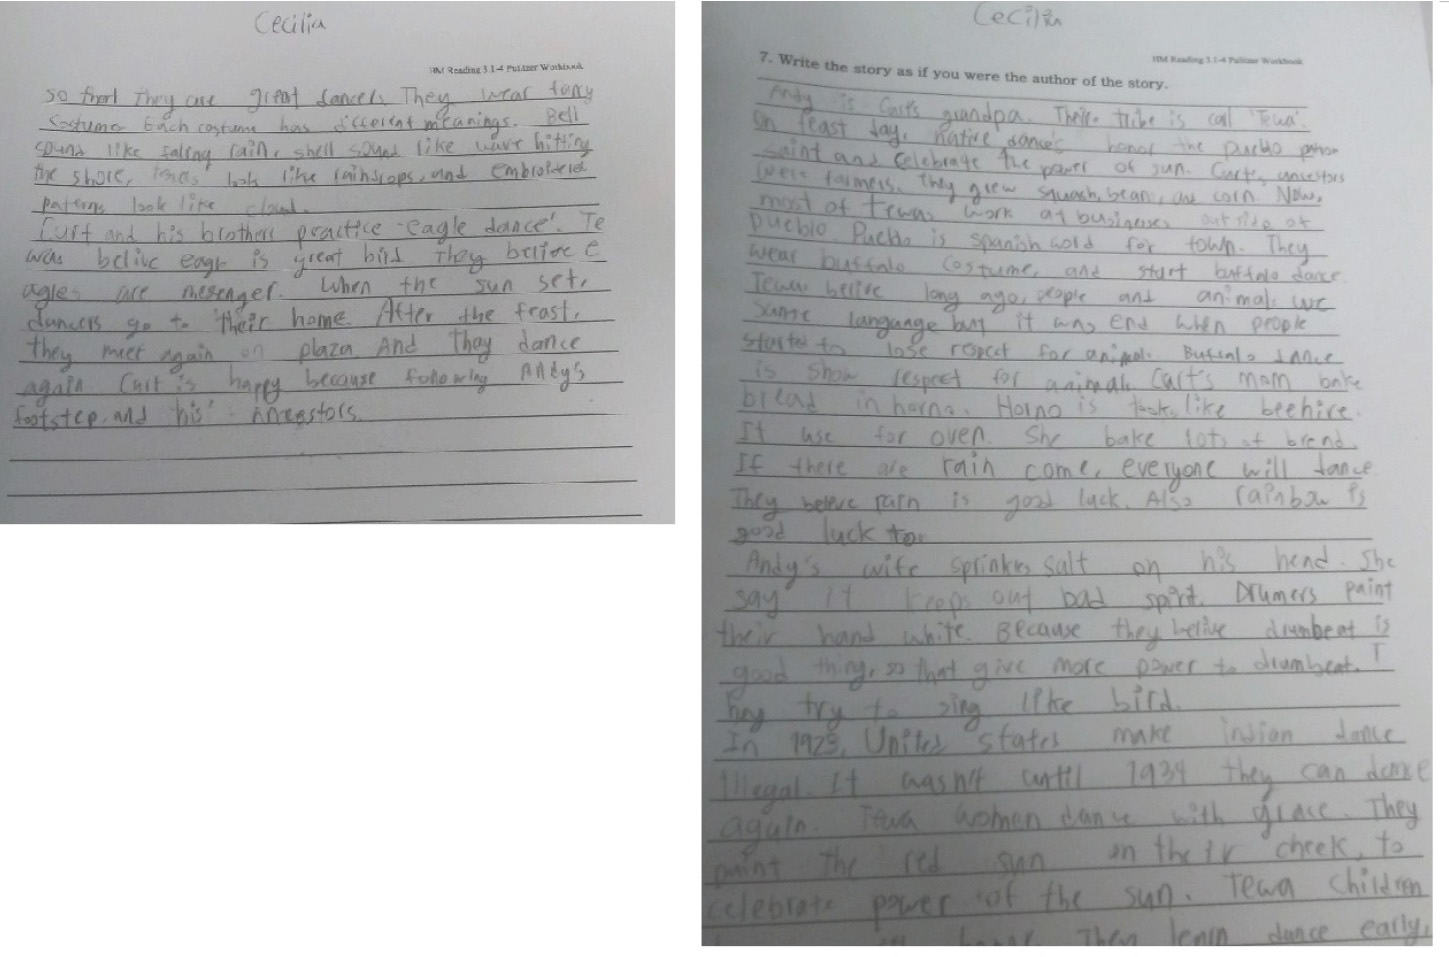 Cecilia
HM Reading 3.1-4 Pulitzer Workbook
7. Write the story as if you were the author of the story.
Andy is Curt's grandpa. Their tribe is call 'Tewa'.
On feast day, native dances honor the pueblo patron
saint and celebrate the power of sun. Curt's ancestors
were farmers. They grew squash, bean, and corn. Now,
most of tewas work at businesses outside of
Pueblo. Pueblo is spanish word for town. They
wear buffalo costume, and start buffalo dance.
Tewas belive long ago, people and animals
same language but it was end when people
started to lose respect for animal. Buffalo dance
is show respect for animal. Curt's mom bake
bread in horno. Horno is looks like beehive.
It use for oven. She bake lots of bread.
If there are rain come, everyone will dance
They beleve rain is good luck. Also rainbow is
good luck to.
Andy's wife sprinkles salt on his head. She
say it keeps out bad spirit. Drumers paint
their hand white. Because they belive drumbeat is
good thing, so that give more power to drumbeat. T
hey try to sing like bird.
In 1923, United states make indian dance
Illegal. It wasn't until 1934 they can dance
again. Tewa women dance with grace. They
paint the red sun on their cheek, to
celebrate power of the sun. Tewa children
They learn dance early,
Cecilia
HM Reading 3.1-4 Pulitzer Workbook
so that they are great dancers. They wear fancy
costume. Each costume has different meanings. Bell
sound like falling rain, shell sound like wave hitting
the shore, look like raindrops, and embroidered
paterns look like cloud.
Curt and his brothers practice 'eagle dance'. Te
was belive eagle is great bird They belive e
agles are mesenger. When the sun set,
dancers go to their home. After the feast,
they meet again on plaza And they dance
again. Curt is happy because following Andy's
footstep, and his ancestors.